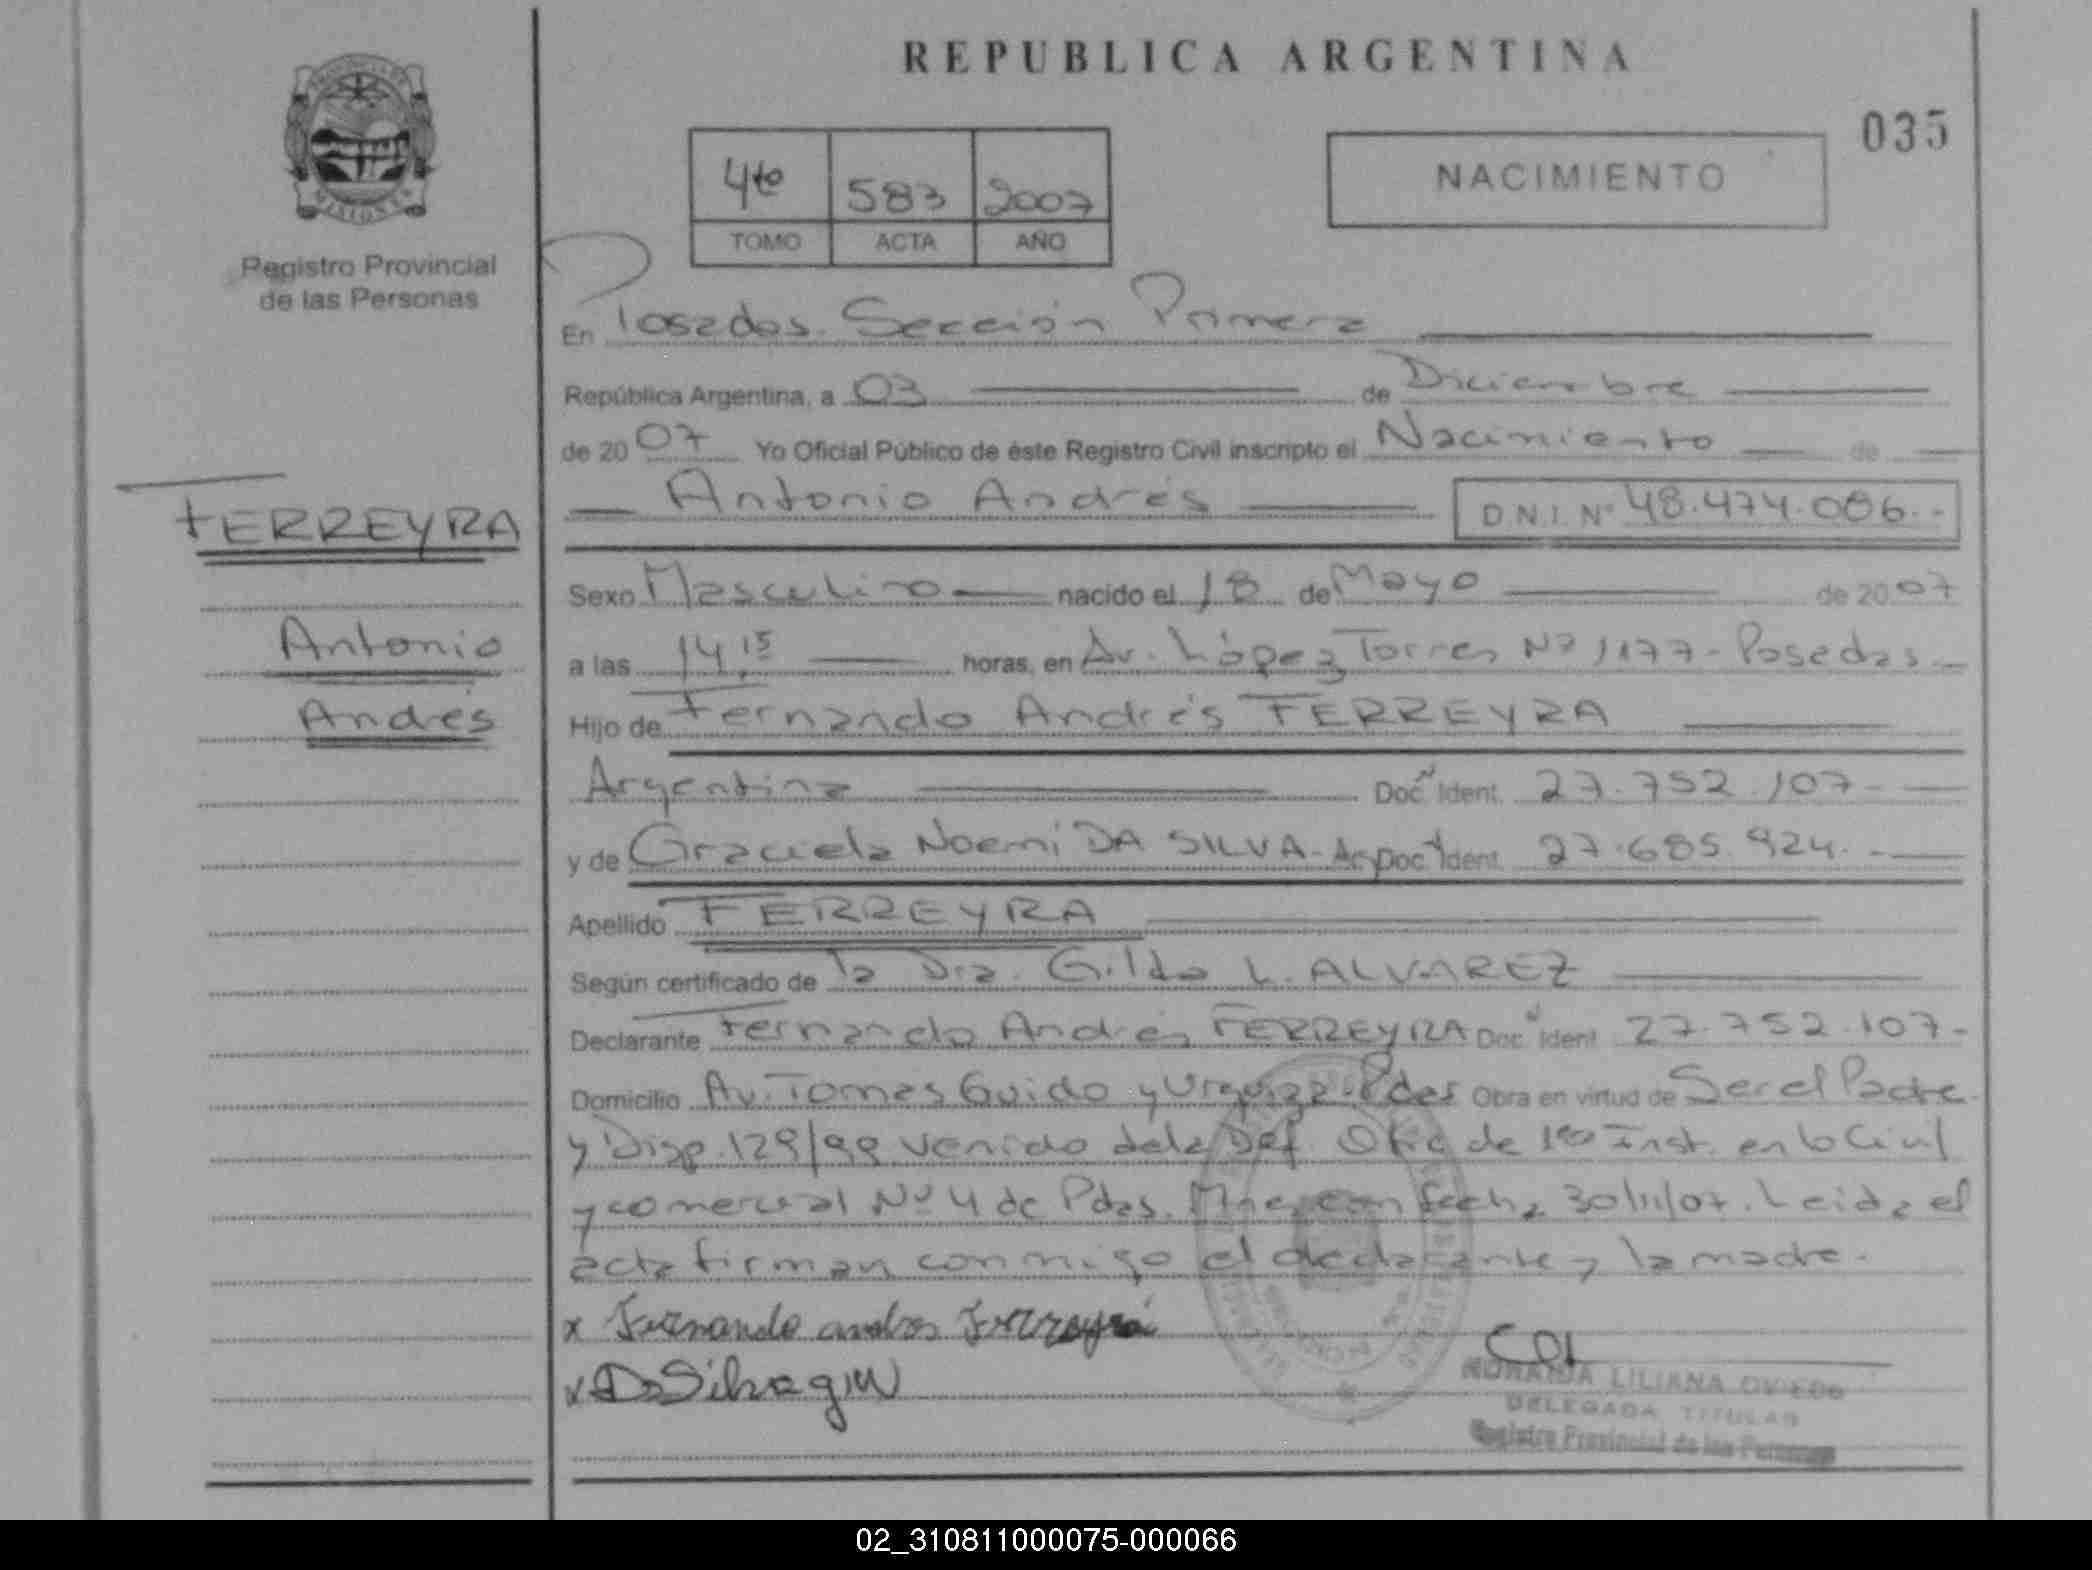 REPUBLICA ARGENTINA
035
PROVINCIA DE
MISIONES
Registro Provincial
de las Personas
4to 583 2007
TOMO ACTA AÑO
NACIMIENTO
En Posadas. Sección Primera
República Argentina, a 03 de Diciembre
de 2007 Yo Oficial Público de éste Registro Civil inscripto el Nacimiento de
Antonio Andrés D.N.I. Nº 48.474.086.-
FERREYRA
Antonio
Andrés
Sexo Masculino nacido el 18 de Mayo de 2007
a las 14,15 horas, en Av. López Torres Nº 1177 - Posadas
Hijo de Fernando Andrés FERREYRA
Argentina Doc. Ident. 27.752.107-
y de Graciela Noemí DA SILVA - Arg Doc. Ident. 27.685.924.-
Apellido FERREYRA
Según certificado de la Dra. Gilda L. ALVAREZ
Declarante Fernando Andrés FERREYRA Doc. Ident. 27.752.107-
Domicilio Av. Tomas Guido y Urquiza - Pdas Obra en virtud de Ser el Padre
y Disp. 129/99 venido de la Def. Ofic de 1ra Inst. en lo Civil
y comercial Nº 4 de Pdas. Mnes con fecha 30/11/07. Leida el
acta firman conmigo el declarante y la madre.
x Fernando andres Ferreyra
x Da Silva
LILIANA OVIEDO
DELEGADA TITULAR
Registro Provincial de las Personas
02_310811000075-000066